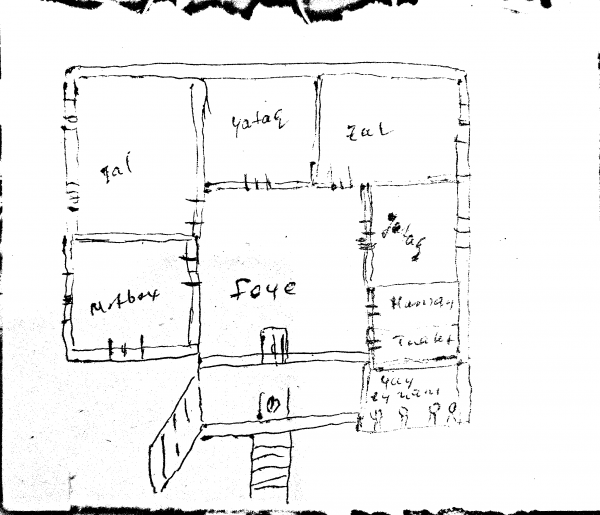 Yataq
Zal
Zal
Yataq
Mətbəx
Foye
Hamam
Tualet
Yay